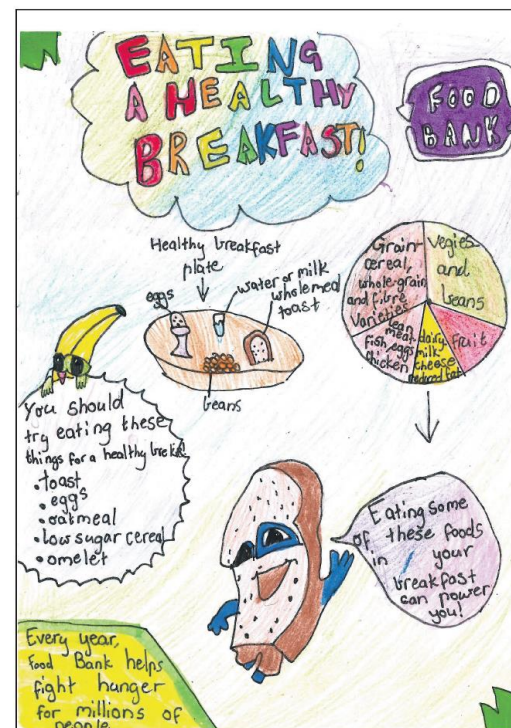 EATING
A HEALTHY
BREAKFAST!
FOOD
BANK
Healthy breakfast
plate
eggs
water or milk
wholemeal
toast
beans
Grain-
cereal,
whole-grain
and fibre
varieties
Vegies
and
beans
fruit
dairy
milk
cheese
reduced fat
lean
meat
fish, eggs
chicken
You should
try eating these
things for a healthy brekkie
• toast
• eggs
• oatmeal
• low sugar cereal
• omelet
Eating some
of these foods
in your
breakfast
can power
you!
Every year,
Food Bank helps
fight hunger
for millions of
people